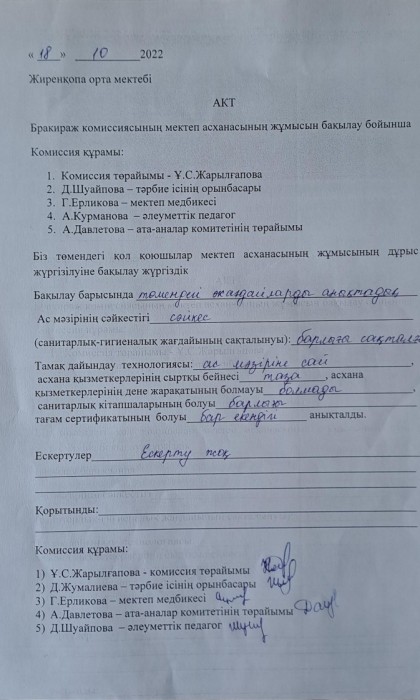 « 18 » 10 2022
Жиренқопа орта мектебі
АКТ
Бракираж комиссиясының мектеп асханасының жұмысын бақылау бойынша
Комиссия құрамы:
1. Комиссия төрайымы - Ұ.С.Жарылғапова
2. Д.Шуайпова – тәрбие ісінің орынбасары
3. Г.Ерликова – мектеп медбикесі
4. А.Курманова – әлеуметтік педагог
5. А.Давлетова – ата-аналар комитетінің төрайымы
Біз төмендегі қол қоюшылар мектеп асханасының жұмысының дұрыс
жүргізілуіне бақылау жүргіздік
Бақылау барысында төмендегі жағдайларды анықтадық
Ас мәзірінің сәйкестігі сәйкес
(санитарлық-гигиеналық жағдайының сақталуы): барлығы
Тамақ дайындау технологиясы: ас мәзіріне сай ,
асхана қызметкерлерінің сыртқы бейнесі таза , асхана
қызметкерлерінің дене жарақатының болмауы болмады ,
санитарлық кітапшаларының болуы барлығы ,
тағам сертификатының болуы бар екендігі анықталды.
Ескертулер Ескерту жоқ
Қорытынды:
Комиссия құрамы:
1) Ұ.С.Жарылғапова - комиссия төрайымы
2) Д.Жумалиева – тәрбие ісінің орынбасары
3) Г.Ерликова – мектеп медбикесі
4) А.Давлетова – ата-аналар комитетінің төрайымы
5) Д.Шуайпова – әлеуметтік педагог